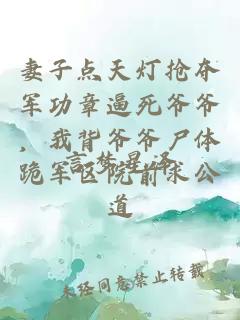 妻子点天灯抢夺
军功章逼死爷爷
，我背爷爷尸体
跪军区院前求公
道
言梦星泽
未经同意禁止转载